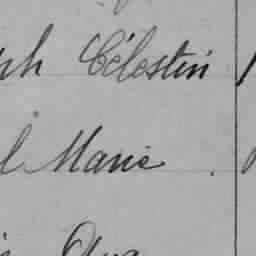 ph Célestin
l Marie .